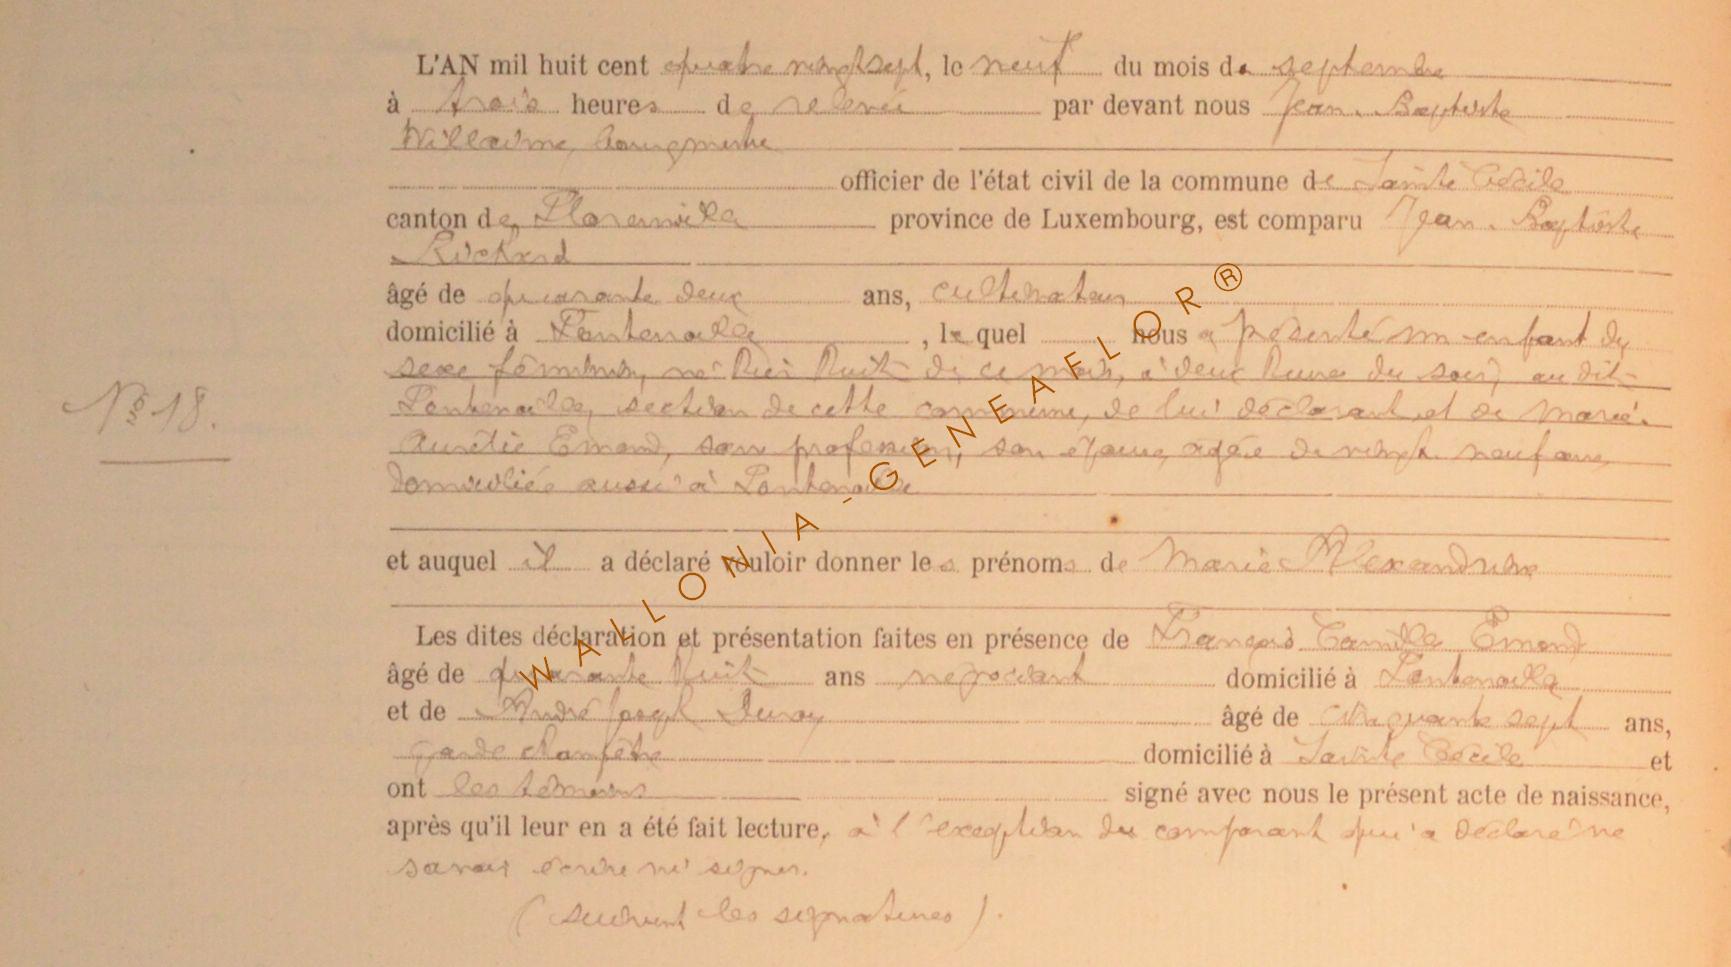 L'AN mil huit cent quatre vingt sept, le neuf du mois de septembre
à trois heures de relevée par devant nous Jean-Baptiste
Willaime, bourgmestre
officier de l'état civil de la commune de Sainte Cécile
canton de Florenville province de Luxembourg, est comparu Jean-Baptiste
Richard
âgé de quarante deux ans, cultivateur
domicilié à Fontenoille, lequel nous a présenté un enfant du
sexe féminin, né hier huit de ce mois, à deux heures du soir, au dit
Fontenoille, section de cette commune, de lui déclarant et de Marie-
Aurélie Emond, sans profession, son épouse, agée de vingt-neuf ans,
domiciliée aussi à Fontenoille
N° 18.
et auquel il a déclaré vouloir donner les prénoms de Marie Alexandrine
Les dites déclaration et présentation faites en présence de François Camille Emond
âgé de quarante huit ans négociant domicilié à Fontenoille
et de André Joseph Duroy âgé de cinquante sept ans,
garde champêtre domicilié à Sainte Cécile et
ont les témoins signé avec nous le présent acte de naissance,
après qu'il leur en a été fait lecture, à l'exception du comparant qui a déclaré ne
savoir écrire ni signer.
(suivent les signatures).
WALLONIA-GENEAELOR®